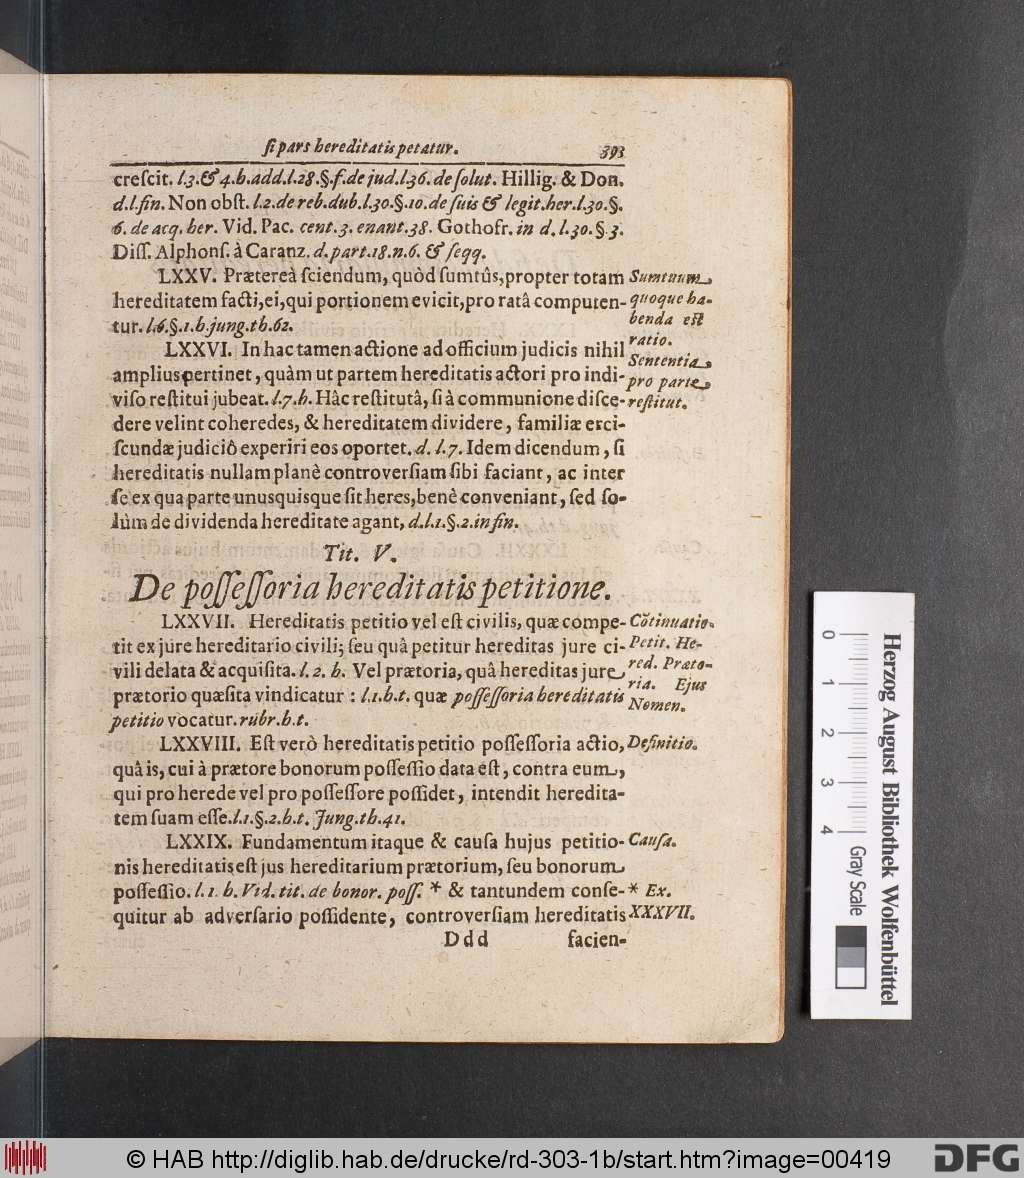 ſi pars hereditatis petatur. 393
creſcit. l.3.& 4.h.add.l.28.§.f.de jud.l.36.de ſolut. Hillig. & Don.
d.l.fin. Non obſt. l.2.de reb.dub.l.30.§.10.de ſuis & legit.her.l.30.§.
6. de acq. her. Vid. Pac. cent. 3. enant. 38. Gothofr. in d. l. 30. § 3.
Diſſ. Alphonſ. à Caranz. d. part. 18. n. 6. & ſeqq.
LXXV. Prætereà ſciendum, quòd ſumtûs, propter totam
hereditatem facti, ei, qui portionem evicit, pro ratâ computen-
tur. l.6.§.1.h.jung.th.62.
Sumtuum
quoque ha-
benda eſt
ratio.
LXXVI. In hac tamen actione ad officium judicis nihil
amplius pertinet, quàm ut partem hereditatis actori pro indi-
viſo reſtitui jubeat. l.7.h. Hâc reſtitutâ, ſi à communione diſce-
dere velint coheredes, & hereditatem dividere, familiæ erci-
ſcundæ judiciô experiri eos oportet. d. l. 7. Idem dicendum, ſi
hereditatis nullam planè controverſiam ſibi faciant, ac inter
ſe ex qua parte unusquisque ſit heres, benè conveniant, ſed ſo-
lùm de dividenda hereditate agant, d.l.1.§.2.in fin.
Sententia
pro parte
reſtitut.
Tit. V.
De poſſeſſoria hereditatis petitione.
LXXVII. Hereditatis petitio vel eſt civilis, quæ compe-
tit ex jure hereditario civili; ſeu quâ petitur hereditas jure ci-
vili delata & acquiſita. l. 2. h. Vel prætoria, quâ hereditas jure
prætorio quæſita vindicatur : l.1.h.t. quæ poſſeſſoria hereditatis
petitio vocatur. rubr. h. t.
Cõtinuatio.
Petit. He-
red. Præto-
ria. Ejus
Nomen.
LXXVIII. Eſt verò hereditatis petitio poſſeſſoria actio,
quâ is, cui à prætore bonorum poſſeſſio data eſt, contra eum,
qui pro herede vel pro poſſeſſore poſſidet, intendit heredita-
tem ſuam eſſe. l.1.§.2.h.t. Jung. th. 41.
Definitio.
LXXIX. Fundamentum itaque & cauſa hujus petitio-
nis hereditatis eſt jus hereditarium prætorium, ſeu bonorum
poſſeſſio. l. 1. h. Vid. tit. de bonor. poſſ. * & tantundem conſe-
quitur ab adverſario poſſidente, controverſiam hereditatis
Cauſa.
* Ex.
XXXVII.
Ddd facien-
0 1 2 3 4
Gray Scale
Herzog August Bibliothek Wolfenbüttel
© HAB http://diglib.hab.de/drucke/rd-303-1b/start.htm?image=00419
DFG